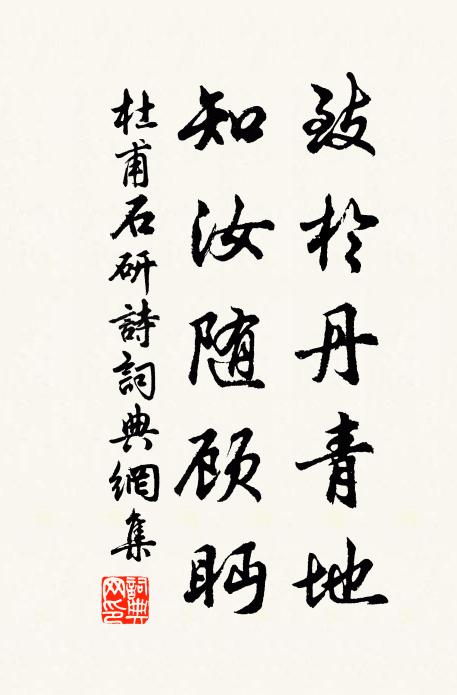 致於丹青地
知汝随顾眄
杜甫石研詩詞典網集
詞典網印